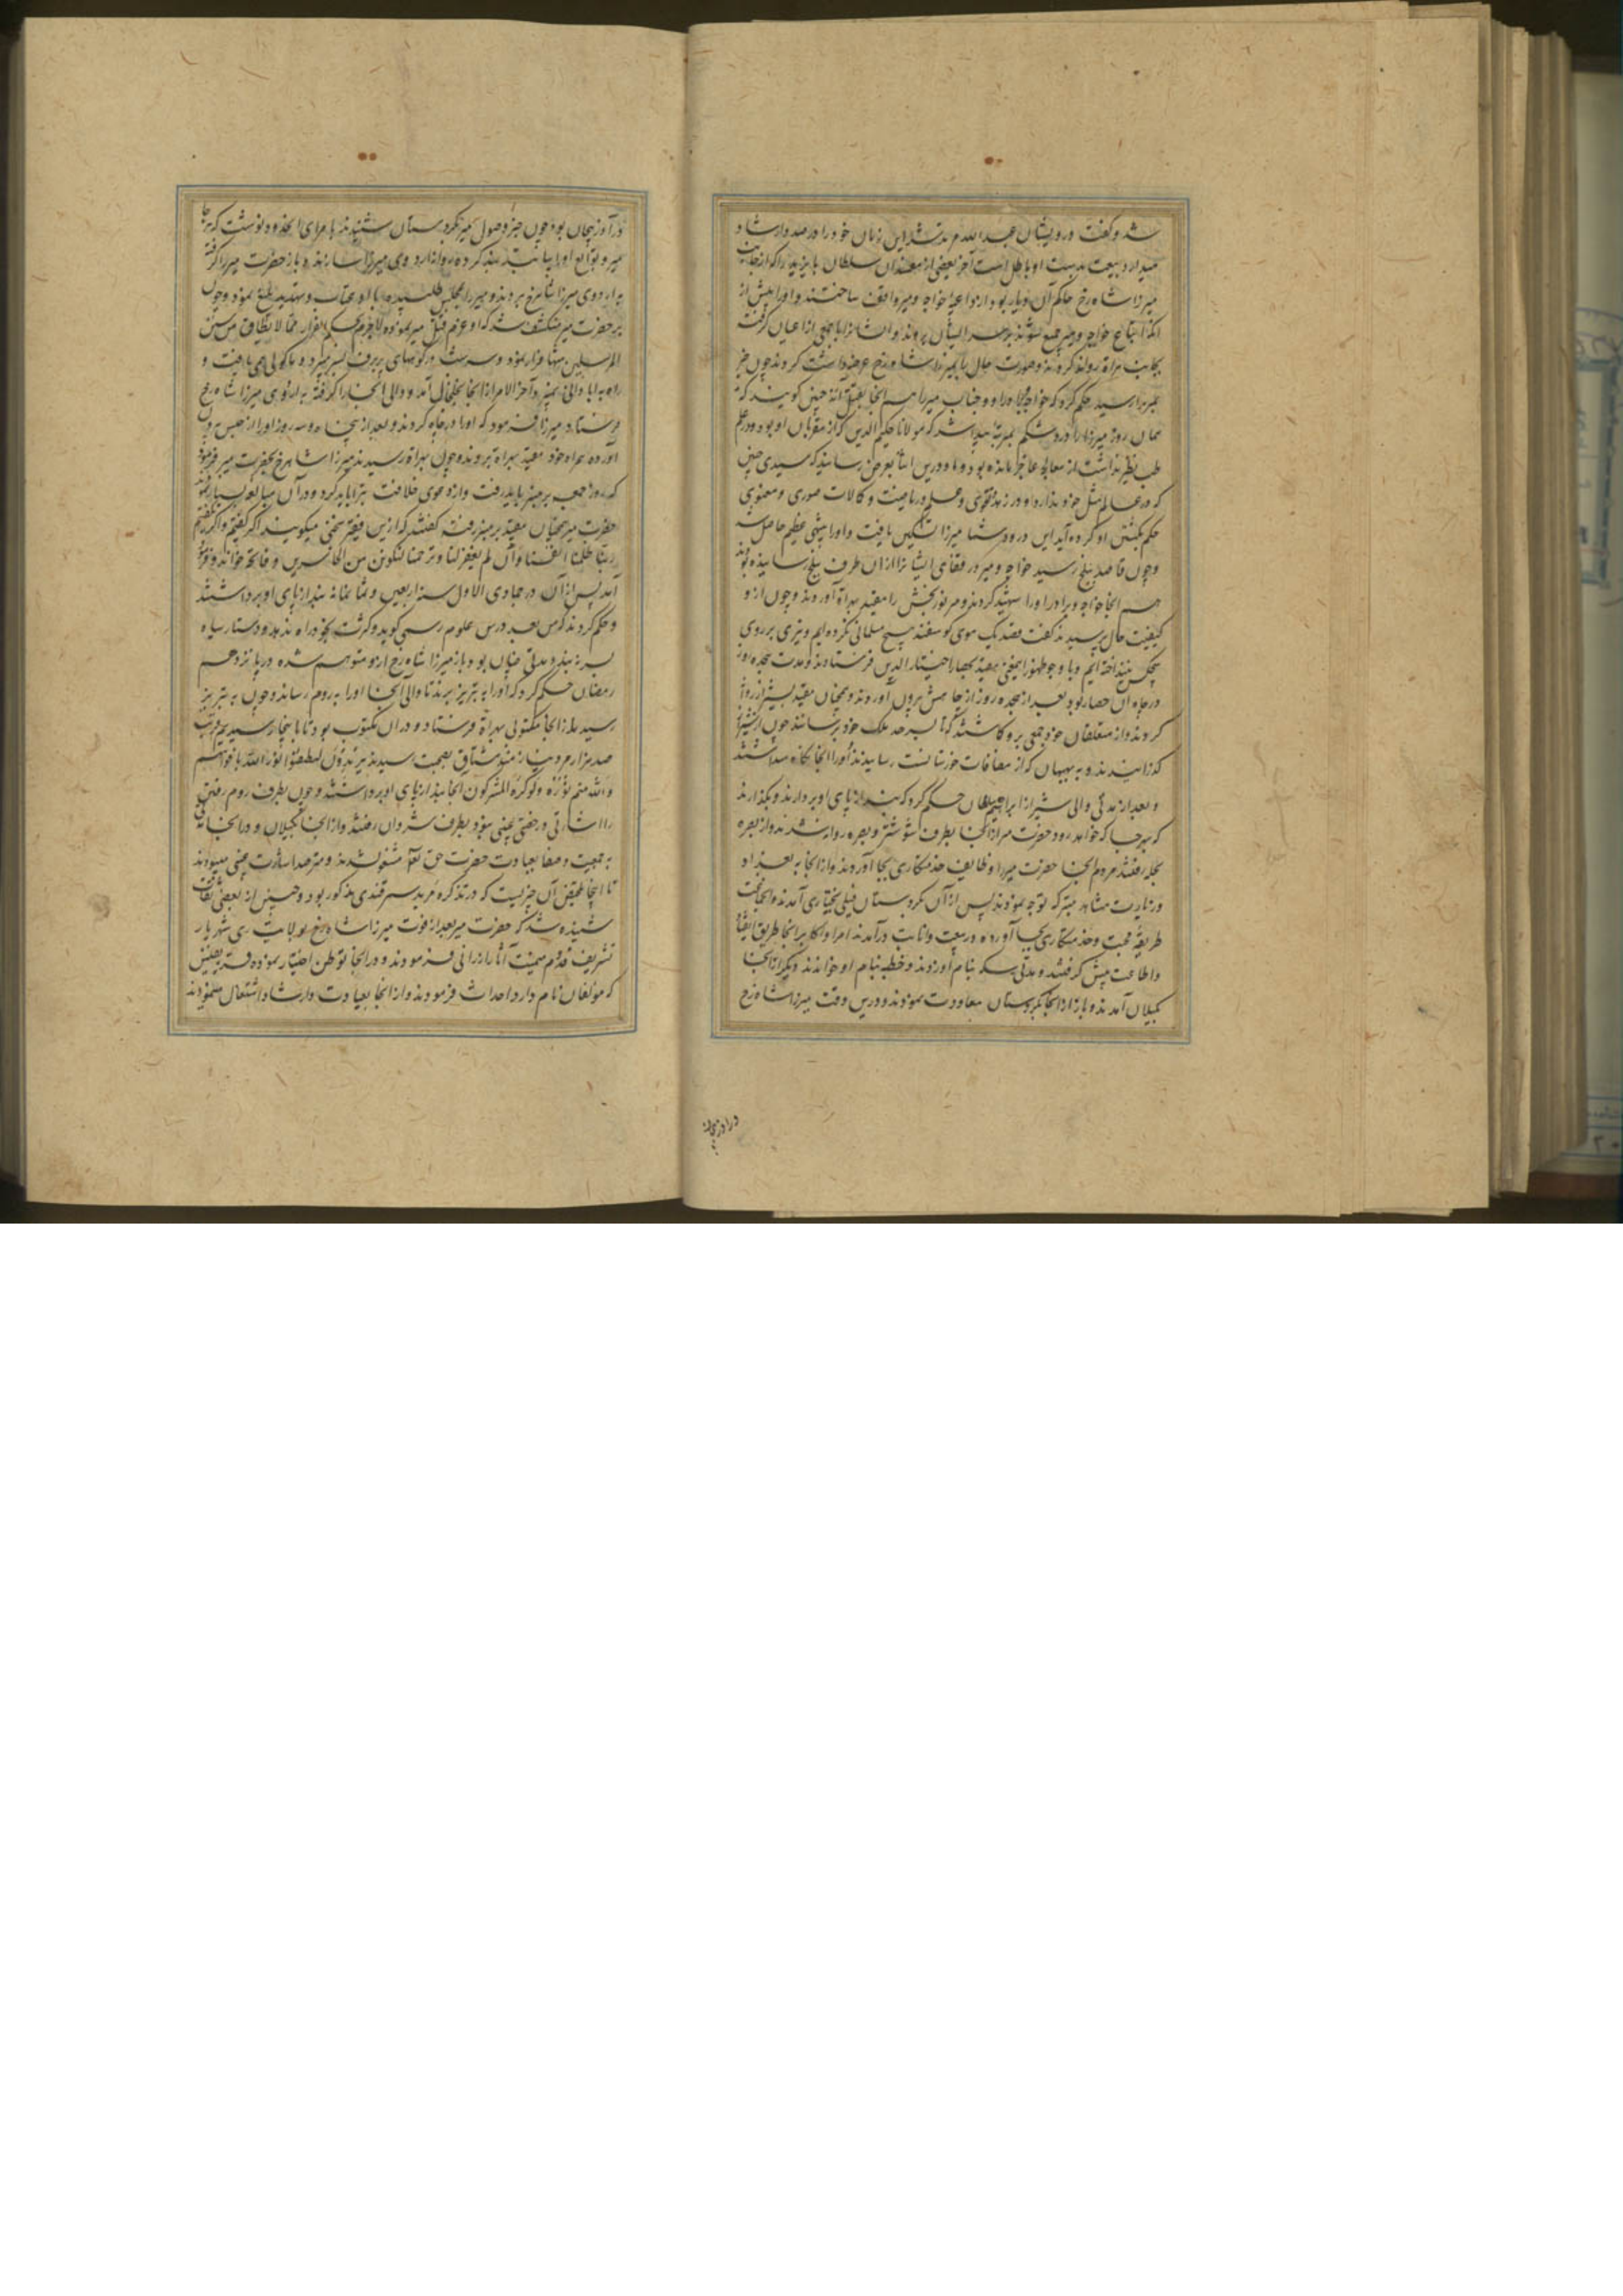 شد و گفت درویشان عبدالله مرتد شد این زمان خود را در صدد ارشاد
میدارد بیعت بدست او باطل است آخر بعضی از مفسدان سلطان بایزید را که از جانب
میرزا شاه رخ حاکم آن دیار بود از داعیه خواجه و میر واقف ساختند و او را پیش از
آنکه اتباع خواجه و میر جمع شوند بر سر ایشان بردند و ایشان را با جمعی از اعیان گرفته
بجانب هراة روانه کردند و صورت حال با میرزا شاه رخ عرضه داشت کردند چون خبر
بمیرزا رسید حکم کرد که خواجه را و جناب میر را هم آنجا بقتل آرند چنین گویند که
همان روز میرزا را درد شکم بمرتبه پیدا شد که مولانا حکیم الدین که از مقربان او بود و در علم
طب نظیر نداشت از معالجه عاجز مانده بود و در این اثنا بعرض رسانید که سیدی چنین
که در عالم مثل خود ندارد و در زهد و تقوی و علم و ریاضت و کمالات صوری و معنوی
حکم بکشتن او کرده آید این درد شما میرزا تسکین یافت و او را تنبهی عظیم حاصل شد
و چون قاصد ببلخ رسید خواجه و میر و رفقای ایشان را از آن طرف ببلخ رسانیده بودند
هم آنجا خواجه و برادر او را شهید کردند و میر نوربخش را مقید بهراة آوردند و چون از و
کیفیت حال پرسیدند گفت قصد یک موی گوسفند هیچ مسلمانی نکرده ایم و تیری بر روی
هیچکس نینداخته ایم مقید بحصار اختیار الدین فرستادند و مدت هجده روز
در چاه آن حصار بود بعد از هجده روز از چاهش بیرون آوردند و همچنان مقید بشیراز روانه
کردند و از متعلقان خود جمعی بر و گماشتند که تا بسرحد ملک خود برسانند چون از شیراز
گذرانیدند و به بهبهان که از مضافات خوزستانست رسانیدند او را آنجا نگاه میداشتند
و بعد از مدتی والی شیراز ابراهیم سلطان حکم کرد که بند از پای او بردارند و بگذارند
که هر جا که خواهد رود حضرت میر از آنجا بطرف شوشتر و بصره روان شدند و از بصره
بحله رفتند مردم آنجا حضرت میر را وظایف خدمتکاری بجا آوردند و از آنجا به بغداد
و زیارت مشاهد متبرکه توجه نمودند پس از آن بکردستان فیلی بختیاری آمدند و آنجا تحت
طریقه محبت و خدمتکاری بجا آورده در بیعت و انابت درآمدند امرا و اکابر آنجا طریق انقیاد
و اطاعت پیش گرفتند و مدتی سکه بنام او زدند و خطبه بنام او خواندند و دیگر از آنجا
بگیلان آمدند و باز از آنجا بکردستان معاودت نمودند و در این وقت میرزا شاه رخ
در آذربیجان
در آذربیجان بود چون خبر وصول میر بکردستان شنیدند بامرای آنحدود نوشت که هر جا
میر و توابع او را بیابند بند کرده روانه اردوی میرزا سازند و باز حضرت میر را گرفته
به اردوی میرزا شاهرخ بردند و میر را بمجلس طلبیده با او عتاب و تهدید بلیغ نمود و چون
بر حضرت میر منکشف شد که او عزم قتل میر نموده لاجرم بحکم الفرار مما لا یطاق من سنن
المرسلین تنها فرار نمود و سه شب در کوههای پر برف بسر میبرد و ماکولی نمی یافت و
راه به آبادانی نمیبرد آخر الامر از آنجا بخلخال آمد و والی آنجا او را گرفته به اردوی میرزا شاه رخ
فرستاد میرزا فرمود که او را در چاه کردند و بعد از پنجاه و سه روز او را از حبس بیرون
آورده همراه خود مقید بهراة بردند و چون بهراة رسیدند میرزا شاهرخ بحضرت میر فرمود
که روز جمعه بر منبر باید رفت و از دعوی خلافت تبرا باید کرد و در آن مبالغه بسیار نمود
حضرت میر همچنان مقید بر منبر رفته گفتند که ازین فقیر سخنی میگویند اگر گفتیم و اگر نگفتیم
ربنا ظلمنا انفسنا وان لم تغفر لنا وترحمنا لنکونن من الخاسرین و فاتحه خواند و فرود
آمد پس از آن در جمادی الاول سنه اربعین و ثمانمائه بند از پای او برداشتند
و حکم کردند که من بعد درس علوم رسمی گوید و کثرت بخود راه ندهد و دستار سیاه
بسر نبندد مدتی چنان بود و باز میرزا شاه رخ از و متوهم شده در پانزدهم
رمضان حکم کرد که او را به تبریز برند تا والی آنجا او را به روم رساند و چون به تبریز
رسید از آنجا مکتوبی بهراة فرستاد و در آن مکتوب بود تا باینجا رسیدیم قریب
صد هزار مرد نیازمند مشتاق بصحبت رسیدند یریدون لیطفئوا نور الله بافواههم
والله متم نوره ولو کره المشرکون آنجا بند از پای او برداشتند و چون بطرف روم رفتن
را اشارتی و رخصتی غیبی نبود بطرف شروان رفتند و از آنجا بگیلان و در آنجا مدتی
به جمعیت و صفا بعبادت حضرت حق تعالی مشغول شدند و مترصد اشارت غیبی میبودند
تا اینجا تلخیص آن چیزیست که در تذکره مرید سمرقندی مذکور بود و حسن از بعضی ثقات
شنیده شد که حضرت میر بعد از فوت میرزا شاه رخ بولایت ری شهریار
تشریف قدوم میمنت آثار ارزانی فرمودند و در آنجا توطن اختیار نموده قریه نفیس
که سولغان نام دارد احداث فرمودند و از آنجا بعبادت و ارشاد اشتغال مینمودند